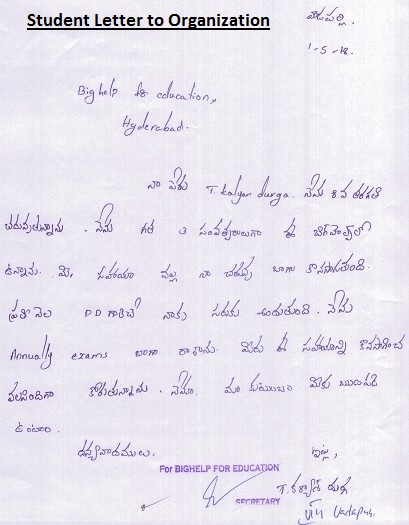 Student Letter to Organization
వాడపల్లి.
1-5-18.
Big help for education,
Hyderabad.
నా పేరు T. Kalyan durga. నేను 8 వ తరగతి
చదువుతున్నాను. నేను గత 3 సంవత్సరాలుగా ఈ బిగ్‌హెల్ప్‌లో
ఉన్నాను. మీ సహాయం వల్ల నా చదువు బాగా కొనసాగుతుంది.
ప్రతి నెల DD గారిచే నాకు సరుకు అందుతుంది. నేను
Annually exams బాగా రాశాను. మీరు ఈ సహాయాన్ని కొనసాగించ
వలసిందిగా కోరుతున్నాను. నేను, మా కుటుంబం మీకు ఋణపడి
ఉంటాం.
ధన్యవాదములు,
ఇట్లు,
For BIGHELP FOR EDUCATION
T. కళ్యాణ్ దుర్గ
SECRETARY
Vadapalli